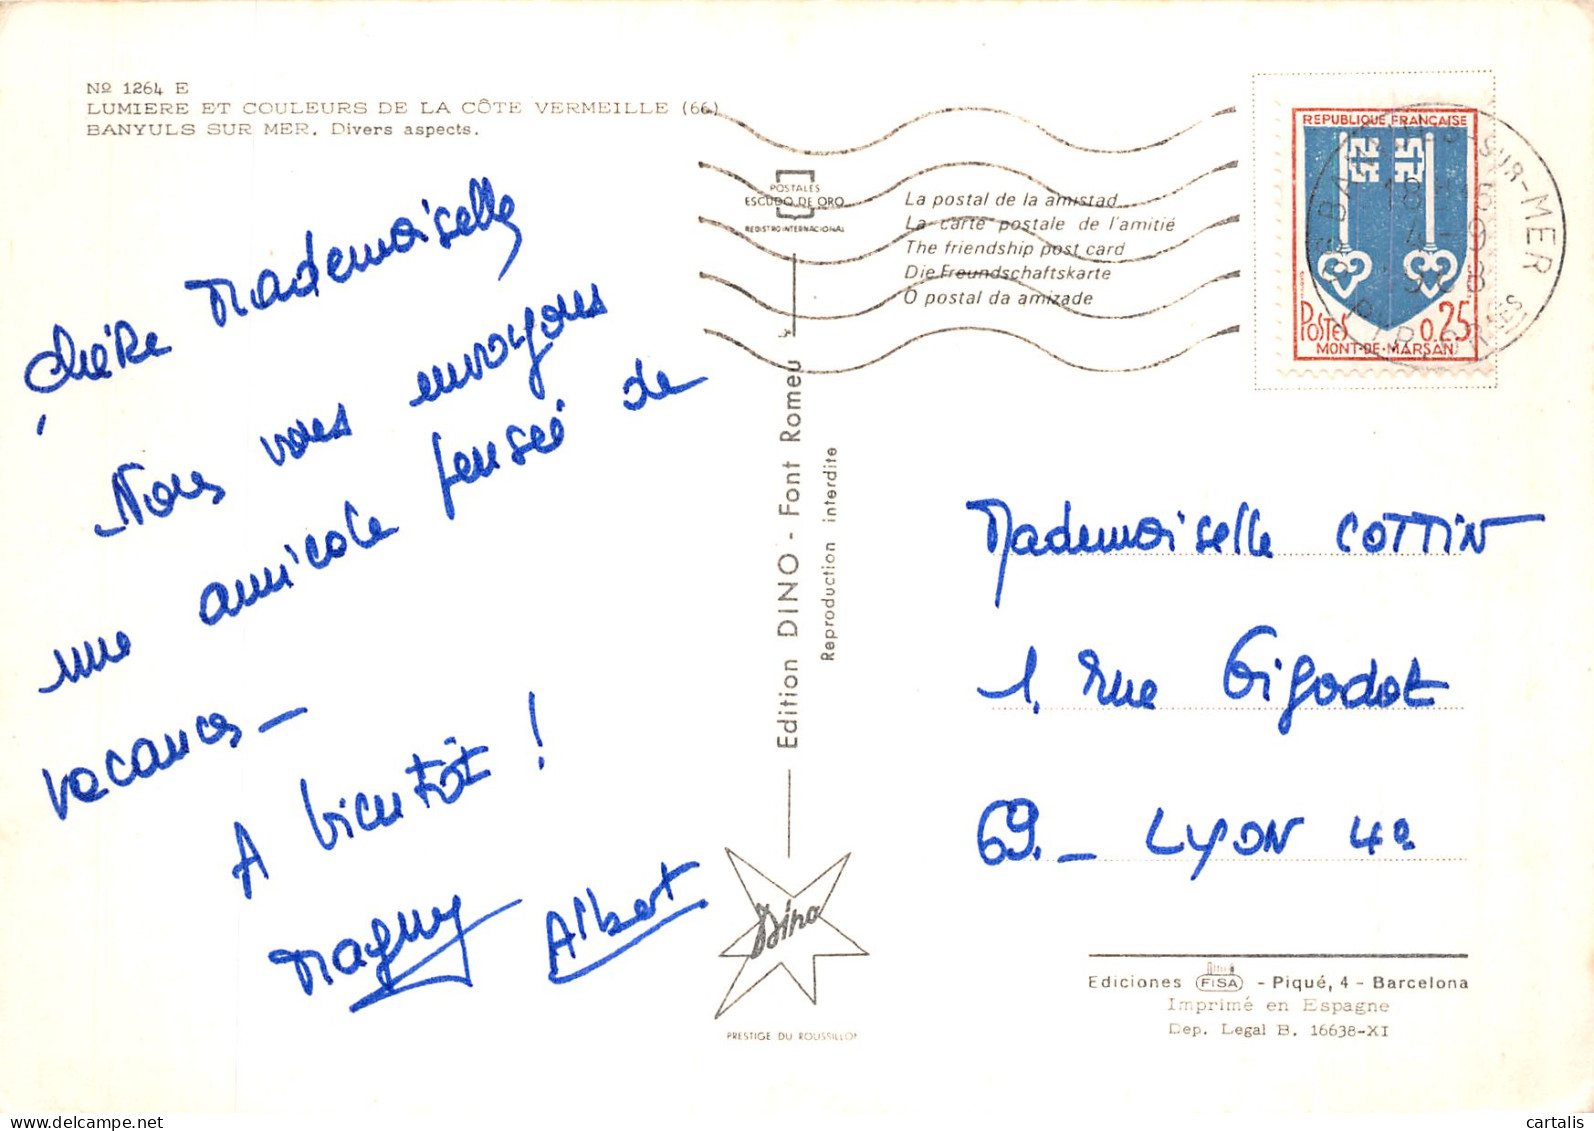 Nº 1264 E
LUMIERE ET COULEURS DE LA CÔTE VERMEILLE (66)
BANYULS SUR MER. Divers aspects.
Chère Mademoiselle
Nous vous envoyons
une amicale pensée de
vacances —
A bientôt !
Magny Albert
POSTALES
ESCUDO DE ORO
REGISTRO INTERNACIONAL
La postal de la amistad
La carte postale de l'amitié
The friendship post card
Die Freundschaftskarte
O postal da amizade
Edition DINO - Font Romeu
Reproduction interdite
Dino
PRESTIGE DU ROUSSILLON
REPUBLIQUE FRANÇAISE
POSTES 0.25
MONT-DE-MARSAN
BANYULS-SUR-MER
18 H
4-9
1968
Mademoiselle COTTIN
1, rue Gigodot
69. — LYON 4e
Ediciones FISA - Piqué, 4 - Barcelona
Imprimé en Espagne
Dep. Legal B. 16638-XI
www.delcampe.net
cartalis